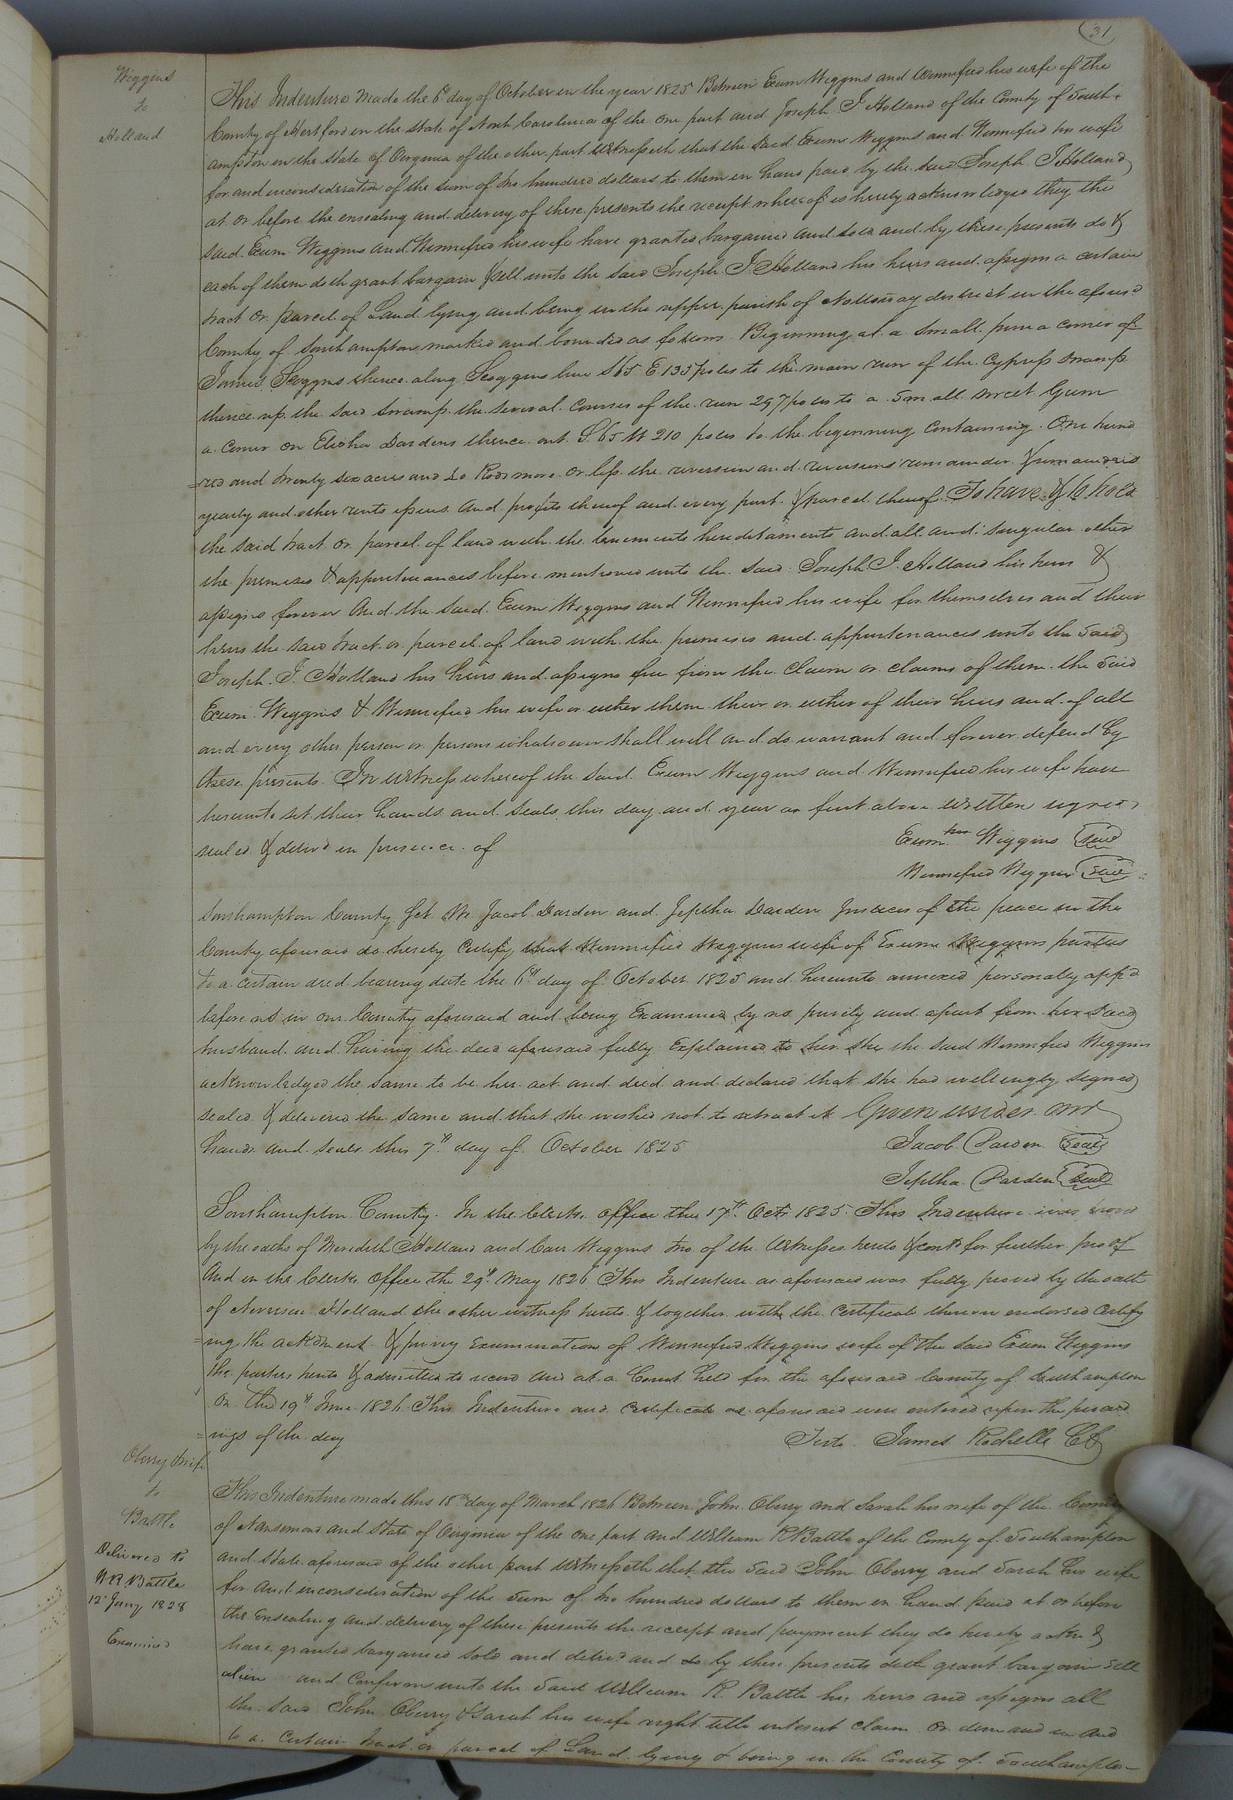 31
Wiggins
to
Holland
This Indenture made the 6th day of October in the year 1825 Between Exum Wiggins and Winnefred his wife of the
County of Hertford in the State of North Carolina of the one part and Joseph J Holland of the County of South-
ampton in the State of Virginia of the other part Witnesseth that the said Exum Wiggins and Winnefred his wife
for and in consideration of the sum of two hundred dollars to them in hand paid by the said Joseph J Holland
at or before the ensealing and delivery of these presents the receipt whereof is hereby acknowledged they the
said Exum Wiggins and Winnefred his wife have granted bargained and sold and by these presents do &
each of them doth grant bargain & sell unto the said Joseph J Holland his heirs and assigns a certain
tract or parcel of Land lying and being in the upper parish of Nottoway district in the aforesd
County of Southampton marked and bounded as follows Beginning at a small pine a corner of
James Scoggins thence along Scoggins line S65 E 135 poles to the main run of the Cypress swamp
thence up the said swamp the several courses of the run 297 poles to a small sweet Gum
a corner on Elisha Dardens thence out S65 W 210 poles to the beginning Containing One hund
=red and twenty six acres and 20 Rods more or less the reversion and reversions remainder &
yearly and other rents issues and profits thereof and every part & parcel thereof To have & to hold
the said tract or parcel of land with the tenements hereditaments and all and singular other
the premises & appurtenances before mentioned unto the said Joseph J. Holland his heirs &
assigns forever And the said Exum Wiggins and Winnefred his wife for themselves and their
heirs the said tract or parcel of land with the premises and appurtenances unto the said
Joseph J. Holland his heirs and assigns free from the Claim or claims of them the said
Exum Wiggins & Winnefred his wife or either them their or either of their heirs and of all
and every other person or persons whatsoever shall will and do warrant and forever defend by
these presents In witness whereof the said Exum Wiggins and Winnefred his wife have
hereunto set their hands and seals this day and year as first above written signed
sealed & deliverd in presence of
Exum Wiggins Seal
Winnefred Wiggins Seal
Southampton County Sct We Jacob Darden and Jeptha Darden Justices of the peace in the
County aforesaid do hereby certify that Winnefred Wiggins wife of Exum Wiggins parties
to a certain deed bearing date the 6th day of October 1825 and hereunto annexed personally appd
before us in our County aforesaid and being Examined by us privily and apart from her said
husband and having the deed aforesaid fully Explained to her she the said Winnefred Wiggins
acknowledged the same to be her act and deed and declared that she had willingly signed
sealed & delivered the same and that she wished not to retract it Given under our
hands and seals this 7th day of October 1825
Jacob Darden Seal
Jeptha Darden Seal
Southampton County. In the Clerks office the 17th Octr 1825 This Indenture was proved
by the oaths of Meredith Holland and Carr Wiggins two of the witnesses hereto & contd for further proof
And in the Clerks Office the 29th May 1826 This Indenture as aforesaid was fully proved by the oath
of Holland the other witness hereto & together with the certificate thereon endorsed certify
=ing the acknment & privy examination of Winnefred Wiggins wife of the said Exum Wiggins
the parties hereto & admitted to record And at a Court held for the aforesaid County of Southampton
on the 19th June 1826 This Indenture and certificate as aforesaid were entered upon the proceed
=ings of the day
Teste James Rochelle CC
Oberry & wife
to
Battle
Delivered to
W R Battle
12 Jany 1828
Examined
This Indenture made this 18th day of March 1826 Between John Oberry and Sarah his wife of the County
of Nansemond and State of Virginia of the one part and William R Battle of the County of Southampton
and State aforesaid of the other part Witnesseth that the said John Oberry and Sarah his wife
for and in consideration of the sum of two hundred dollars to them in hand paid at or before
the ensealing and delivery of these presents the receipt and payment they do hereby ackn &
have granted bargained sold and delivd and do by these presents doth grant bargain sell
alien and Confirm unto the said William R Battle his heirs and assigns all
the said John Oberry & Sarah his wife right title interest claim or demand in and
to a certain tract or parcel of Land lying & being in the County of Southampton